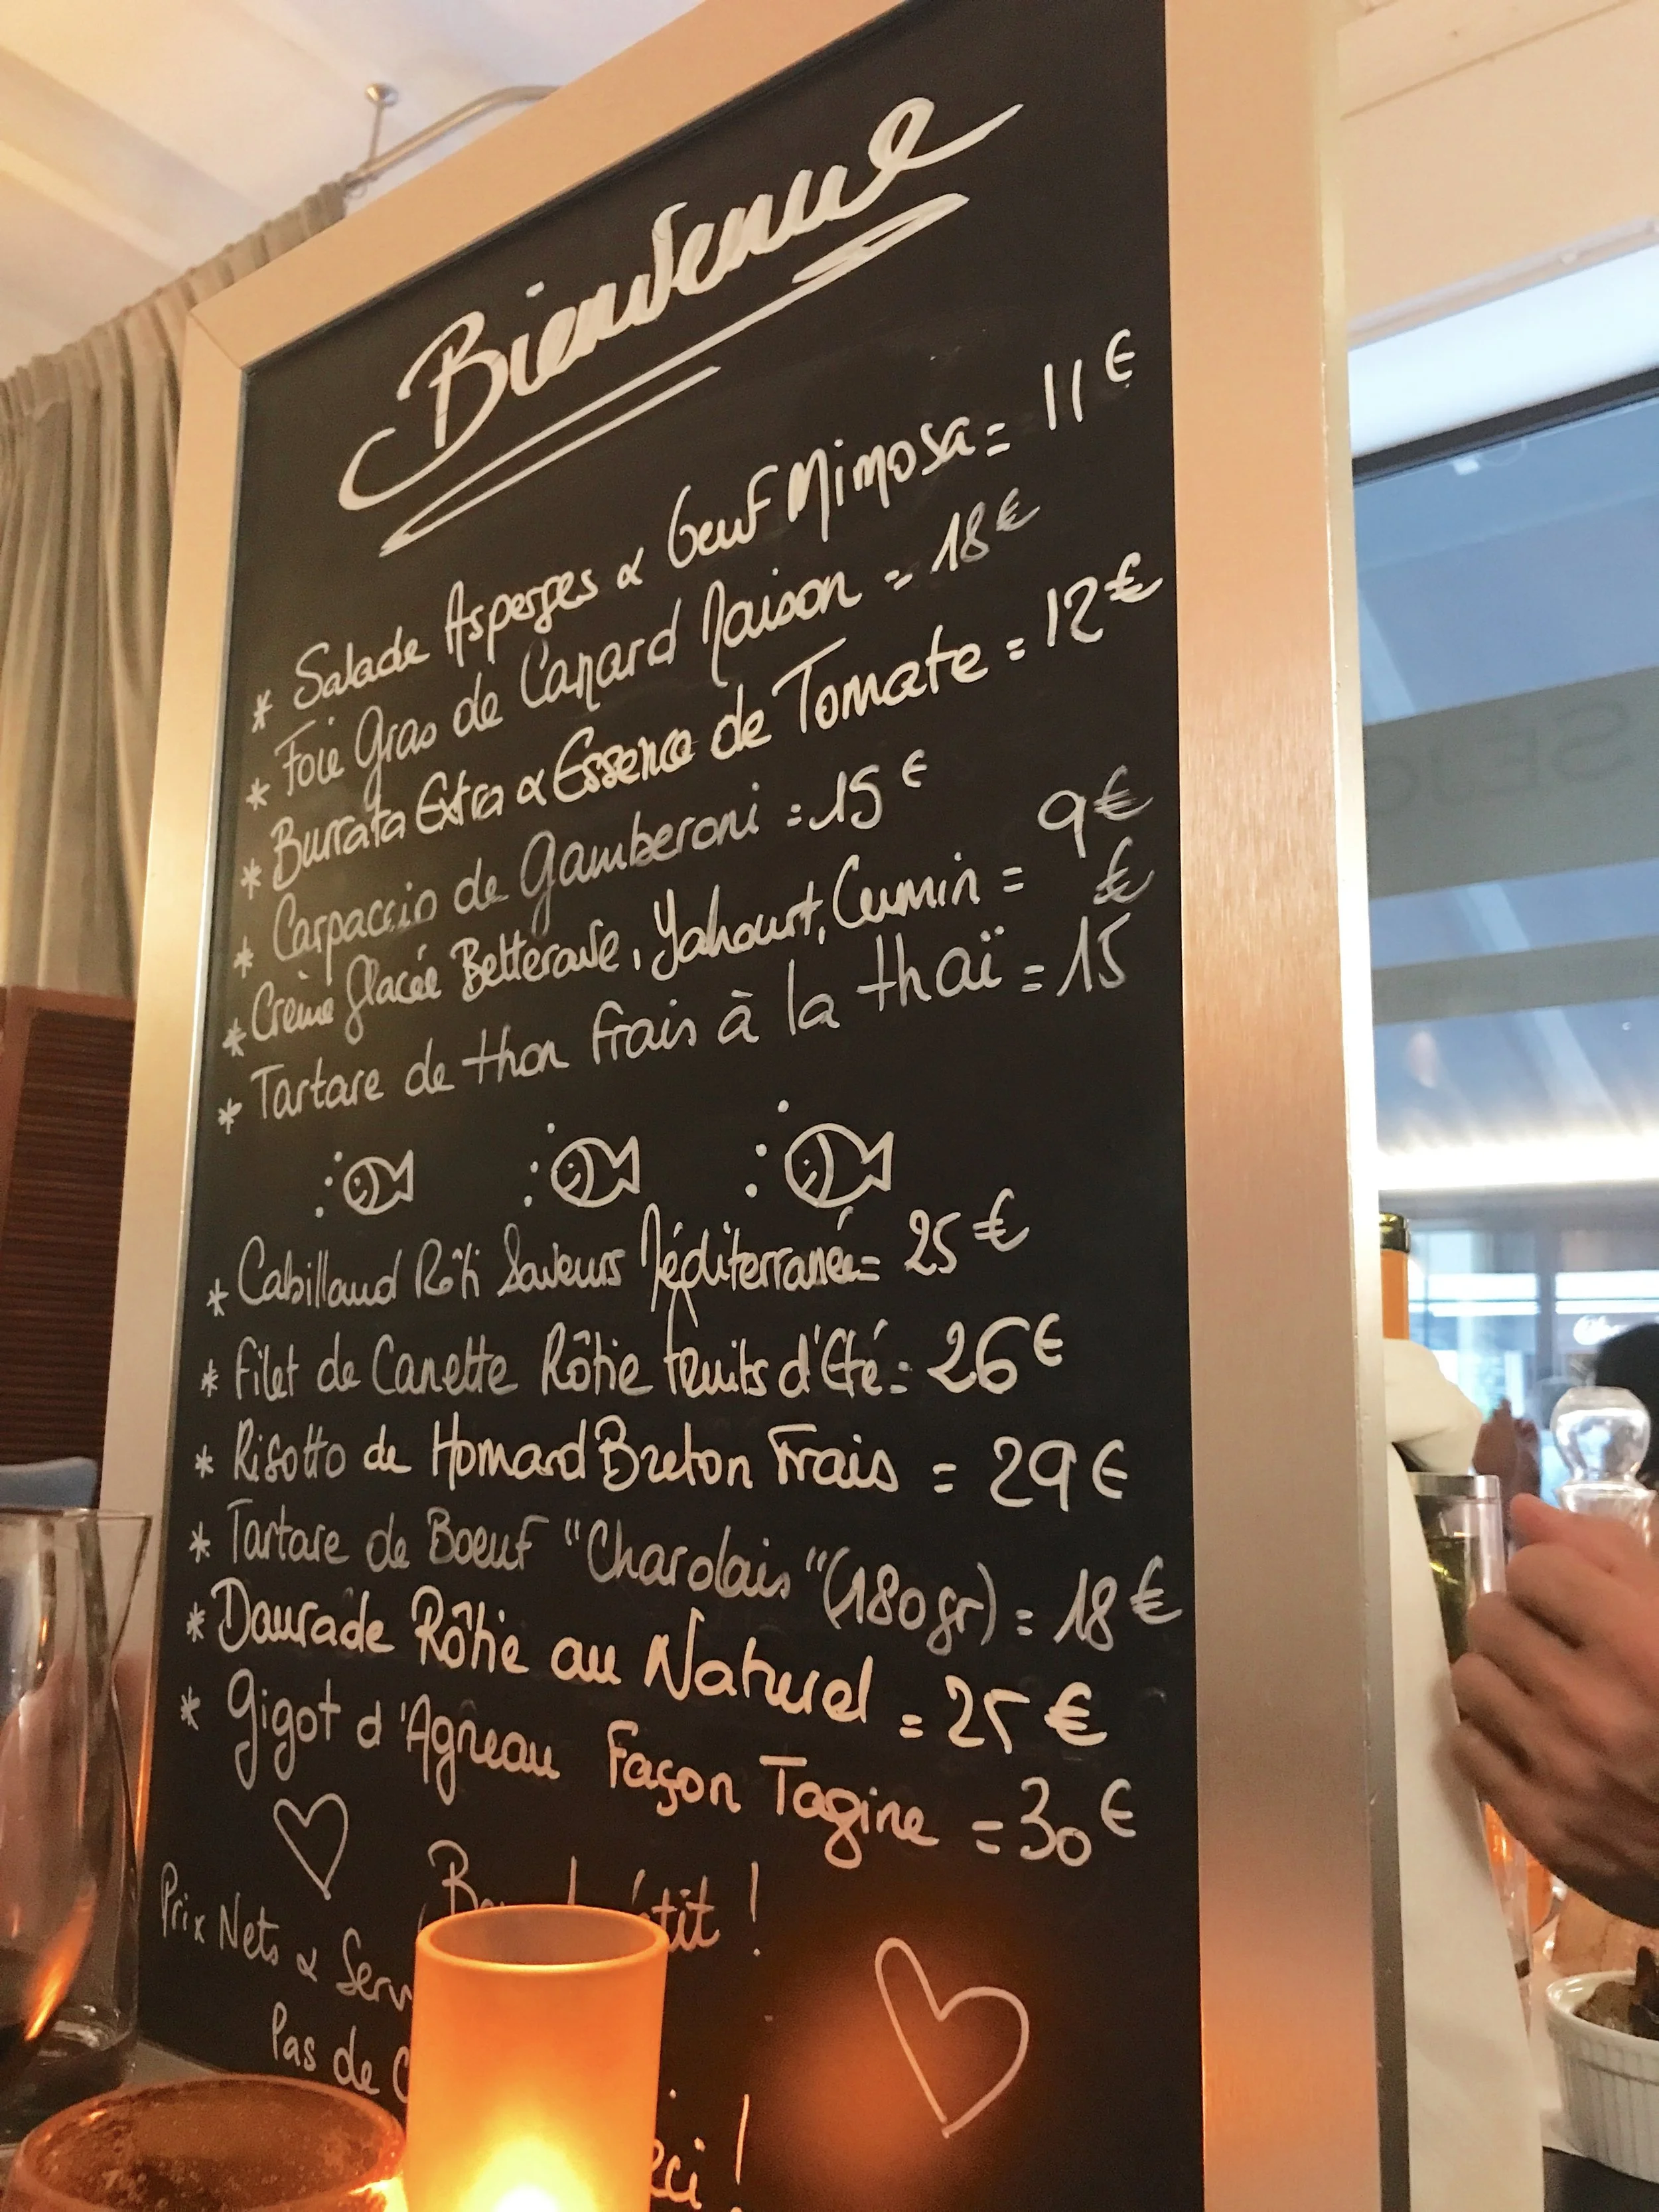 Bienvenue
* Salade Asperges & Oeuf Mimosa = 11€
* Foie Gras de Canard Maison = 18€
* Burrata Extra & Essence de Tomate = 12€
* Carpaccio de Gamberoni = 15€
* Crème Glacée Betterave, Yahourt, Cumin = 9€
* Tartare de thon frais à la thaï = 15€
* Cabillaud Rôti Saveurs Méditerranée = 25€
* Filet de Canette Rôtie fruits d'Eté = 26€
* Risotto de Homard Breton Frais = 29€
* Tartare de Boeuf "Charolais" (180gr) = 18€
* Daurade Rôtie au Naturel = 25€
* Gigot d'Agneau Façon Tagine = 30€
!
Prix Nets &
Pas de
!